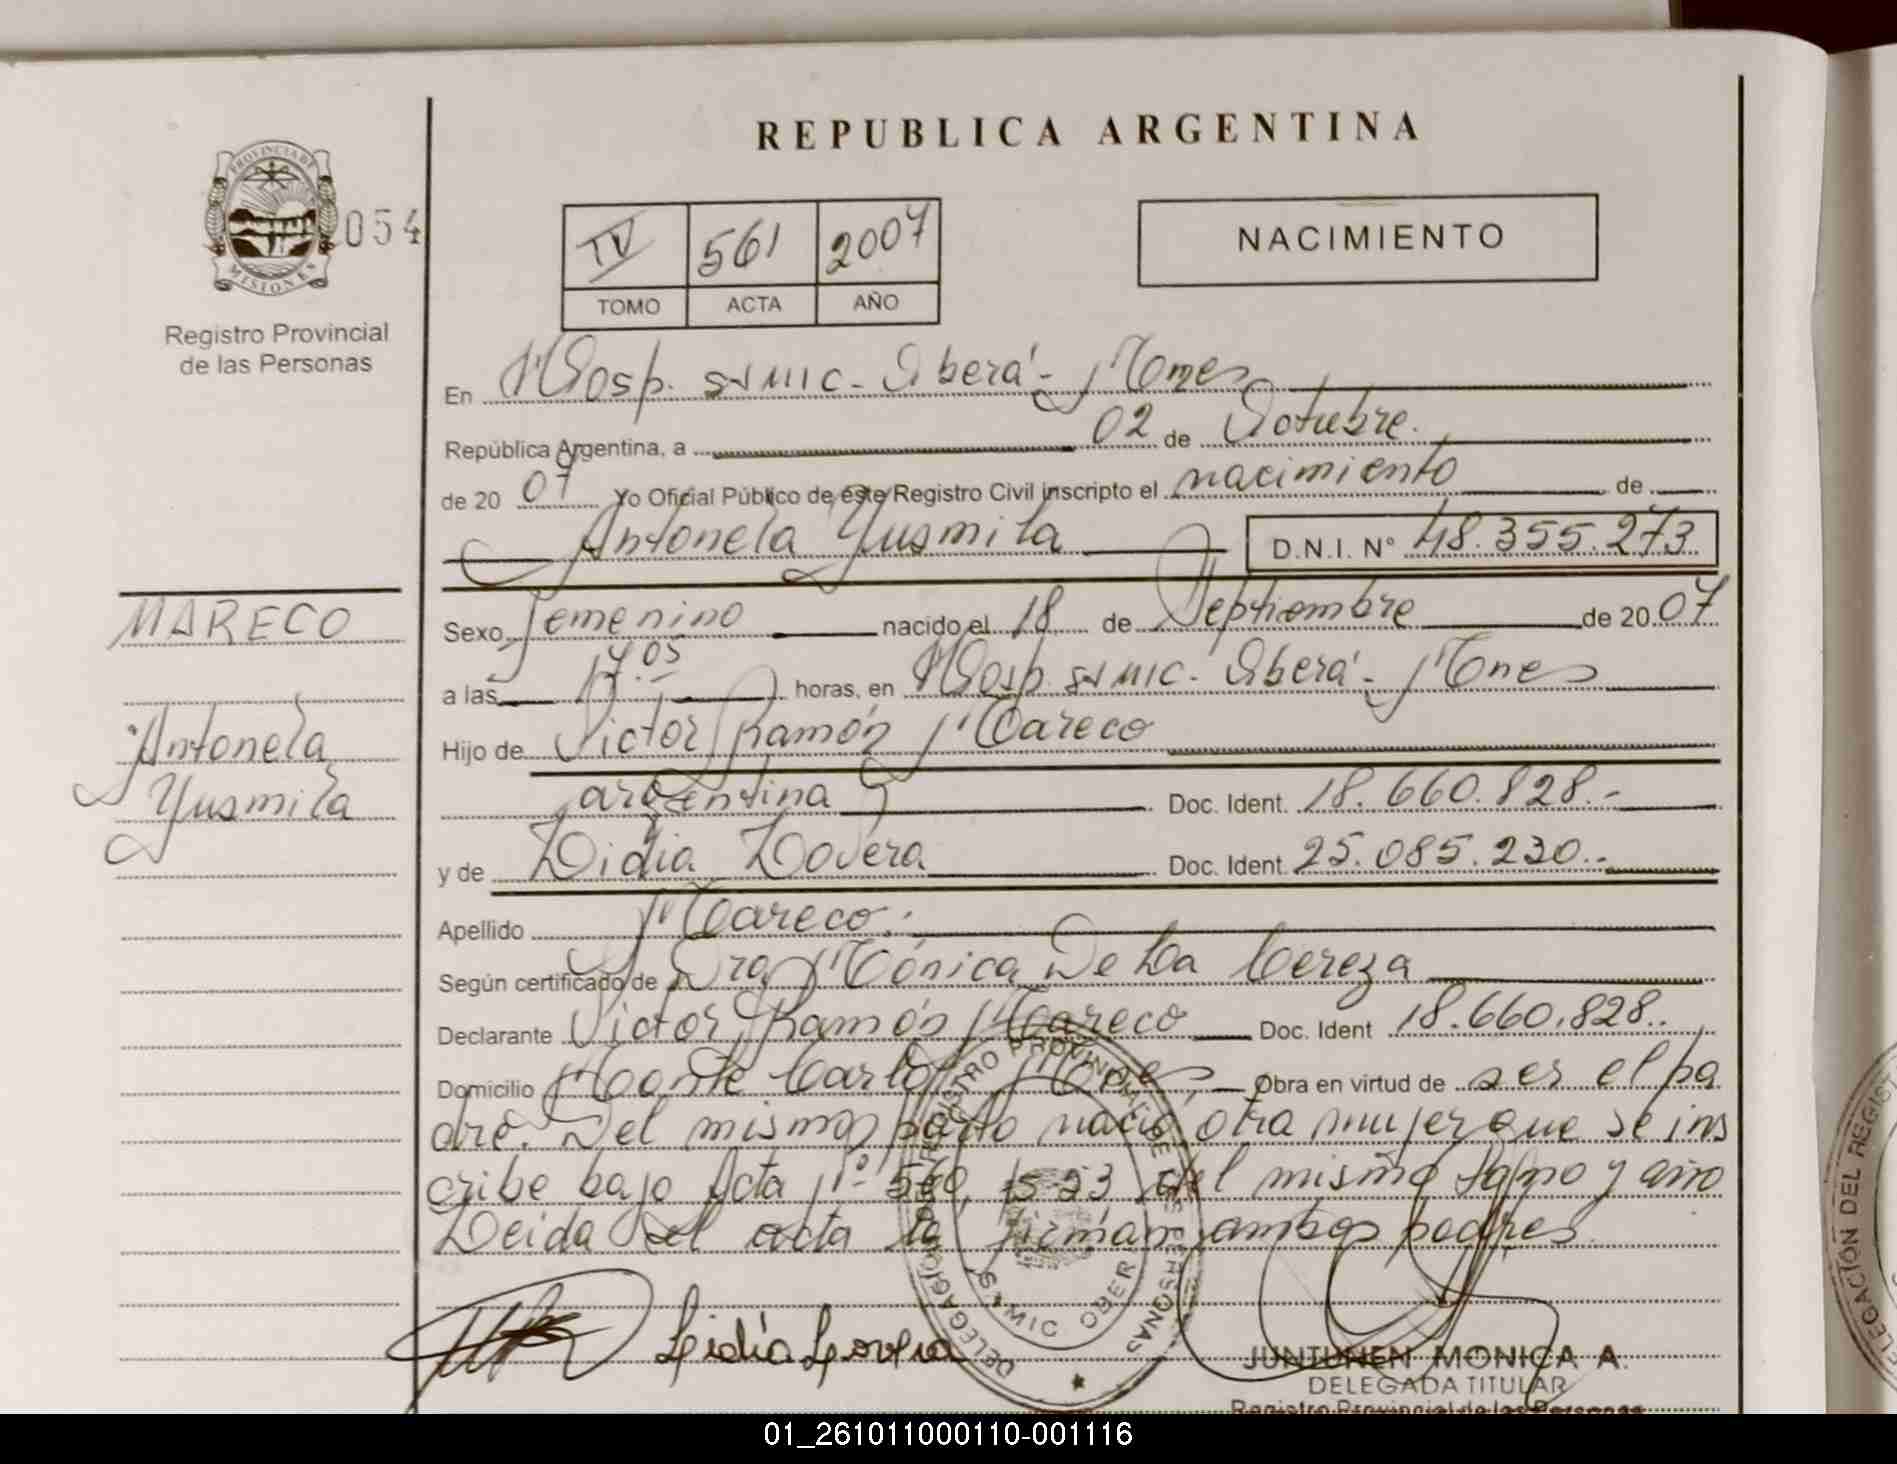 REPUBLICA ARGENTINA
PROVINCIA DE
MISIONES
054
Registro Provincial
de las Personas
IV 561 2007
TOMO ACTA AÑO
NACIMIENTO
En Hosp. SAMIC - Oberá - Mnes
República Argentina, a 02 de Octubre.
de 20 07 Yo Oficial Público de este Registro Civil inscripto el nacimiento de
Antonela Yusmila D.N.I. N° 48.355.273
MARECO
Antonela
Yusmila
Sexo femenino nacido el 18 de Septiembre de 20 07
a las 17.05 horas, en Hosp. SAMIC - Oberá - Mnes
Hijo de Victor Ramón Mareco
argentina Doc. Ident. 18.660.828.-
y de Lidia Lovera Doc. Ident. 25.085.230.-
Apellido Mareco.
Según certificado de Dra Mónica De La Cereza
Declarante Victor Ramón Mareco Doc. Ident 18.660.828.
Domicilio Monte Carlo Mnes Obra en virtud de ser el pa
dre. Del mismo parto nació otra mujer que se ins
cribe bajo Acta N° 560, del mismo tomo y año
Leida el acta la firman ambos padres.
Lidia Lovera
DELEGACION REGISTRO PROVINCIAL DE LAS PERSONAS
SAMIC OBERA
JUNTUNEN MONICA A.
DELEGADA TITULAR
Registro Provincial de las Personas
DELEGACIÓN DEL REGIST
01_261011000110-001116